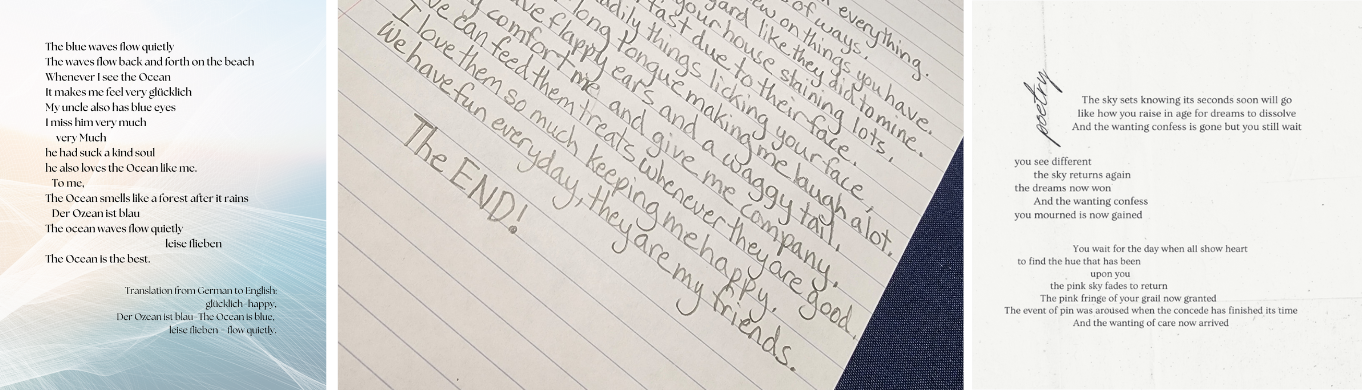 The blue waves flow quietly
The waves flow back and forth on the beach
Whenever I see the Ocean
It makes me feel very glücklich
My uncle also has blue eyes
I miss him very much
very Much
he had suck a kind soul
he also loves the Ocean like me.
To me,
The Ocean smells like a forest after it rains
Der Ozean ist blau
The ocean waves flow quietly
leise flieben
The Ocean is the best.
Translation from German to English:
glücklich-happy,
Der Ozean ist blau-The Ocean is blue,
leise flieben - flow quietly.
everything.
of ways.
on things you have.
yard like they did to mine.
your house staining lots,
fast due to their face.
things licking your face,
long tongue making me laugh alot.
have flappy ears and a waggy tail,
comfort me, and give me company.
we can feed them treats whenever they are good.
I love them so much keeping me happy,
We have fun everyday, they are my friends.
The END!
poetry
The sky sets knowing its seconds soon will go
like how you raise in age for dreams to dissolve
And the wanting confess is gone but you still wait
you see different
the sky returns again
the dreams now won
And the wanting confess
you mourned is now gained
You wait for the day when all show heart
to find the hue that has been
upon you
the pink sky fades to return
The pink fringe of your grail now granted
The event of pin was aroused when the concede has finished its time
And the wanting of care now arrived